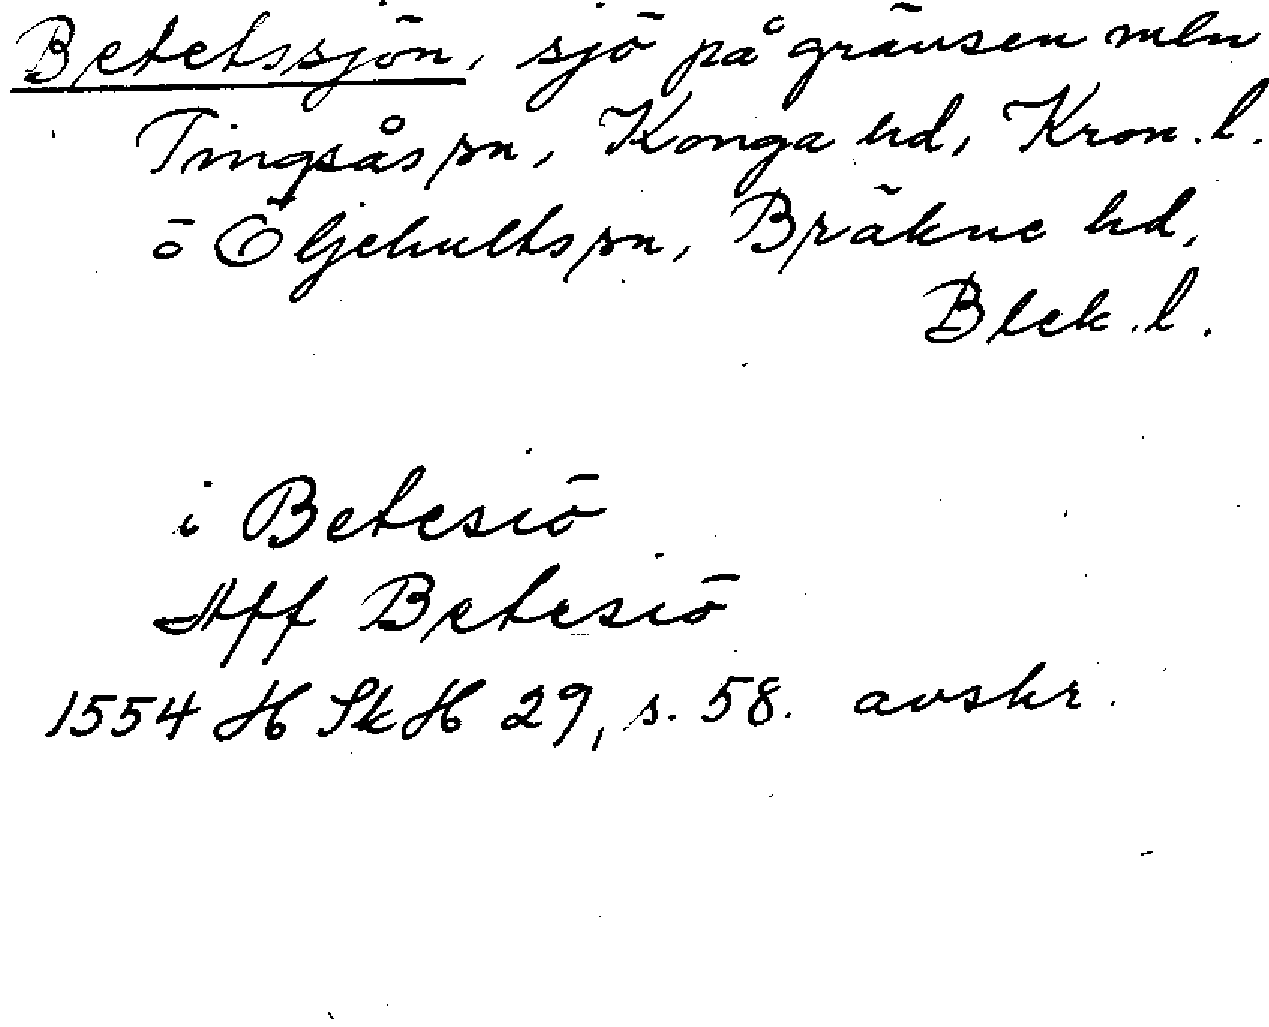 Betetssjön, sjö på gränsen mln
Tingsås sn, Konga hd, Kron.l.
o Öljehults sn, Bräkne hd,
Blek.l.
i Betesiö
Aff Betesiö
1554 H Sk H 29, s. 58. avskr.